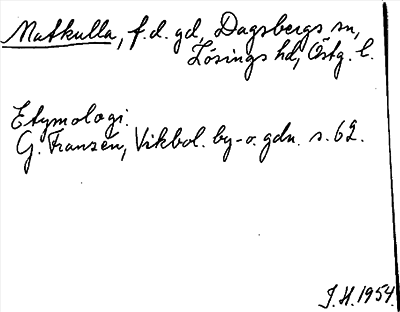 Matkulla, f.d. gd, Dagsbergs sn,
Lösings hd, Östg. l.
Etymologi:
G. Franzén, Vikbol. by- o. gdn. s. 62.
J.H. 1954.